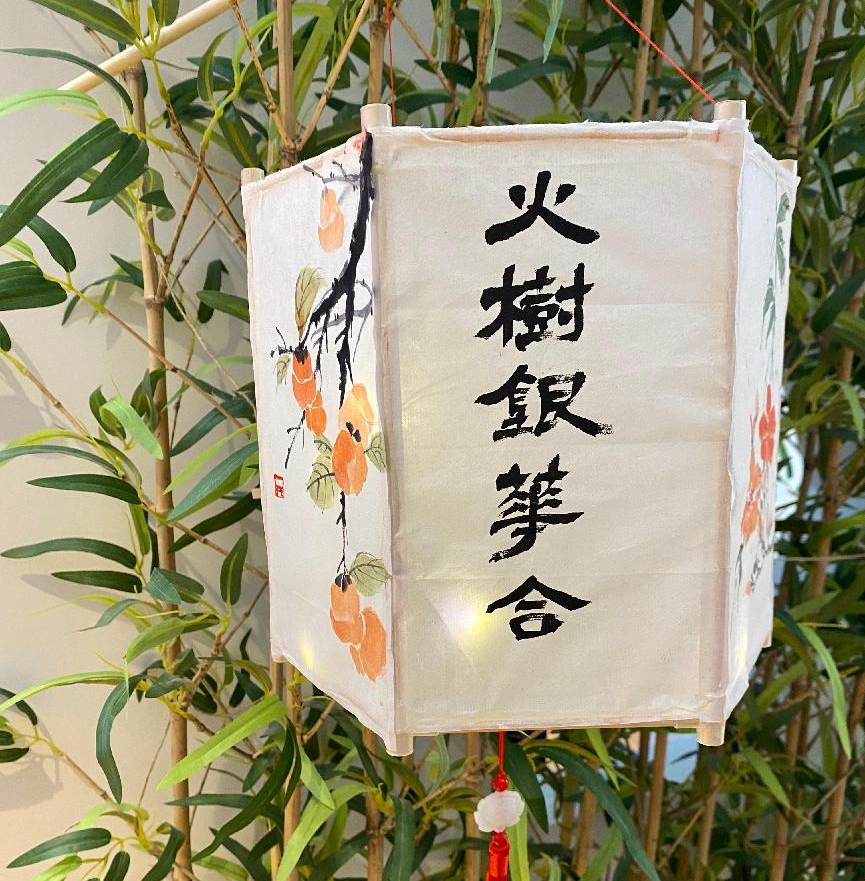 火樹銀華合